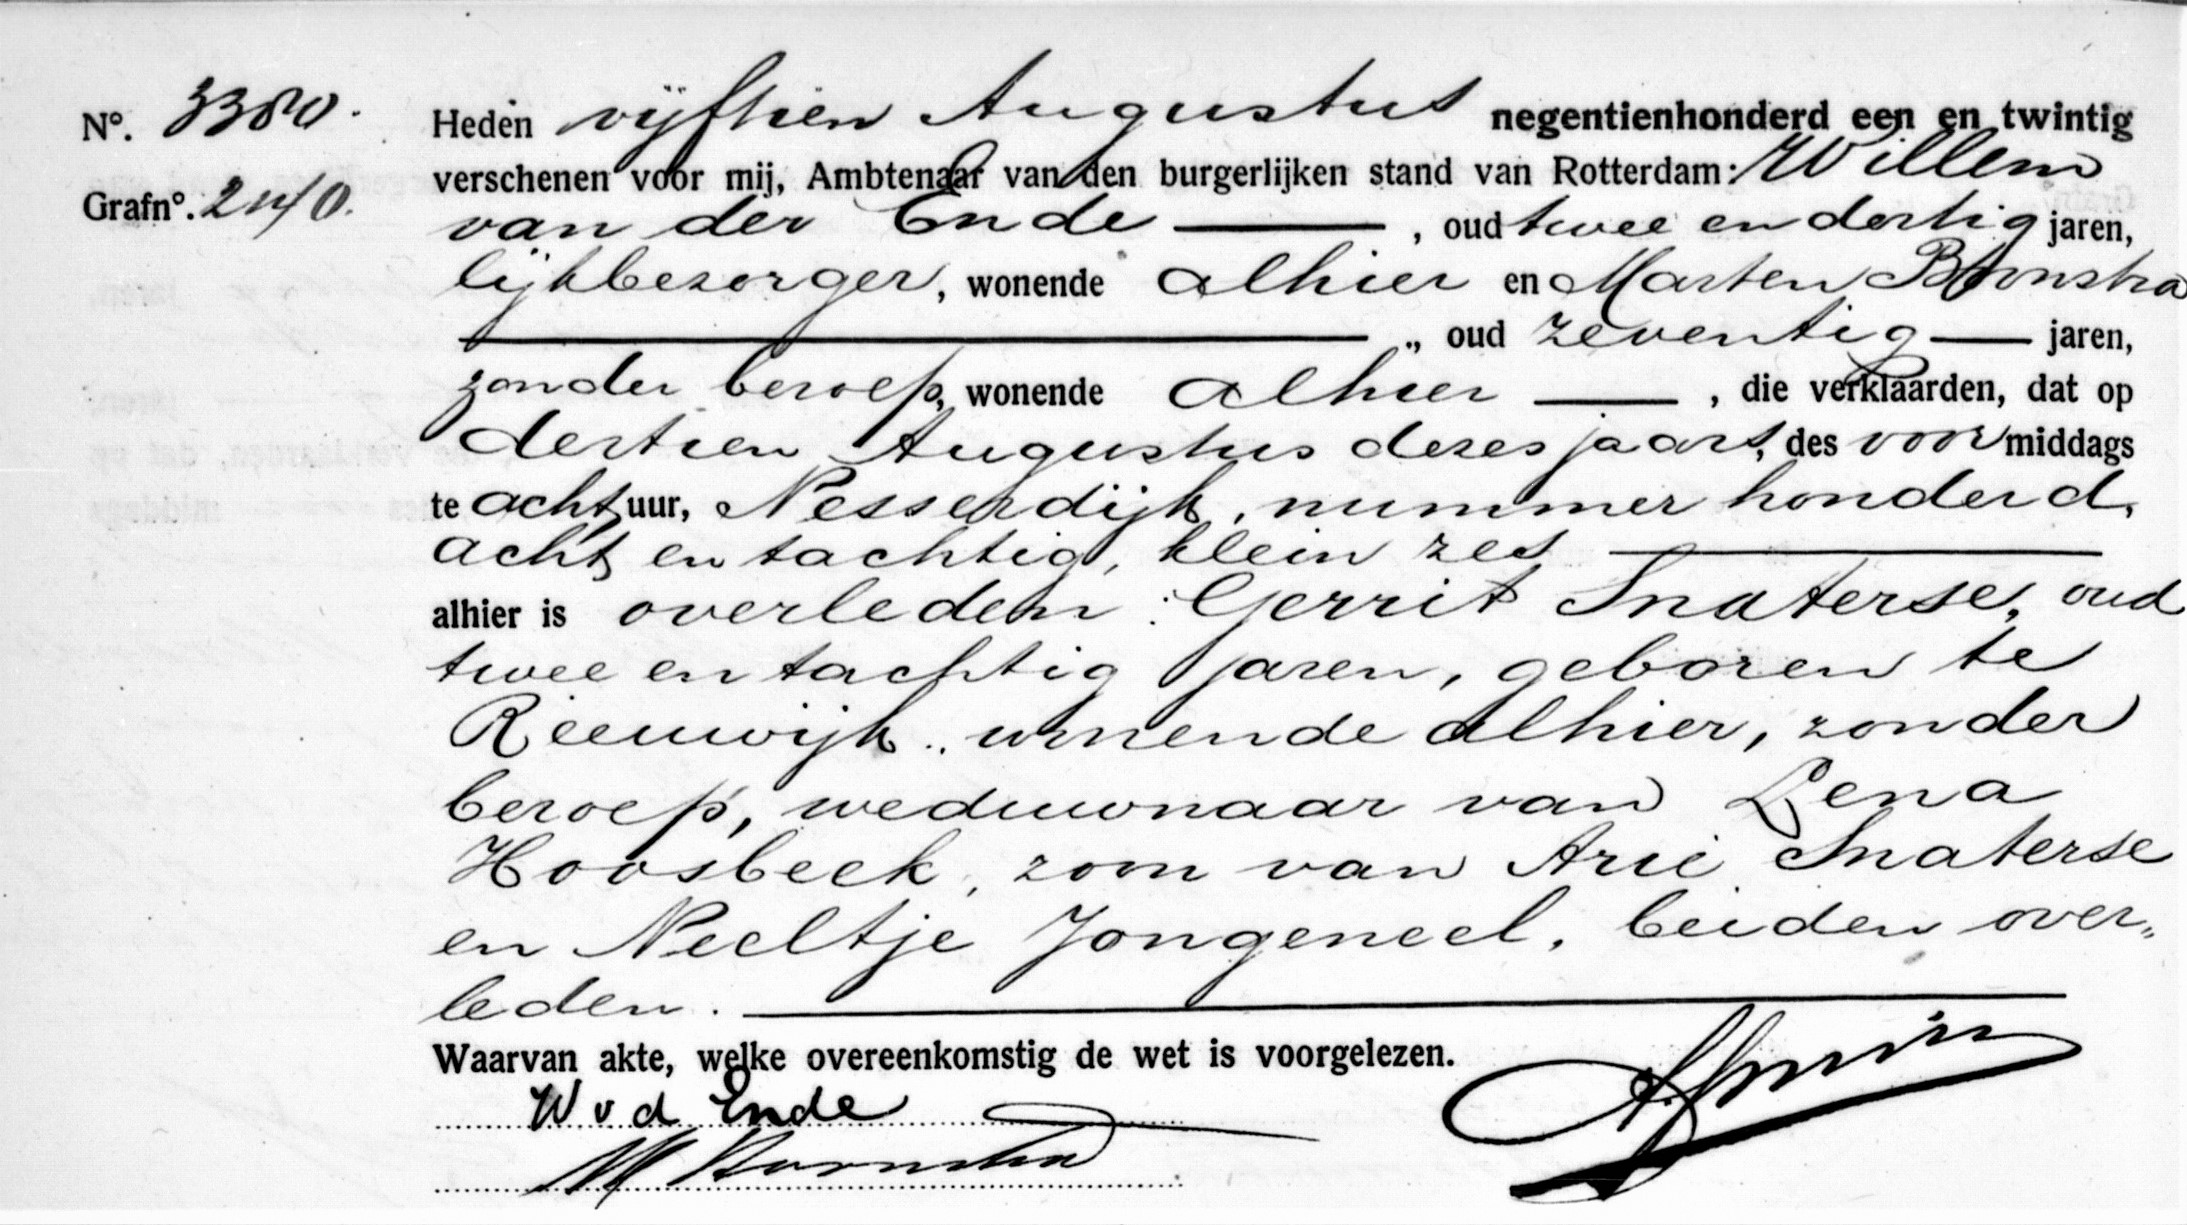 Nº. 3380.
Heden vijftien Augustus negentienhonderd een en twintig
verschenen voor mij, Ambtenaar van den burgerlijken stand van Rotterdam: Willem
Grafnº. 2440.
van der Ende ——, oud twee en dertig jaren,
lijkbezorger, wonende alhier en Marten Boonstra
——, oud zeventig — jaren,
zonder beroep, wonende alhier ——, die verklaarden, dat op
dertien Augustus dezes jaars, des voormiddags
te acht uur, Nesserdijk, nummer honderd,
acht en tachtig, klein zes ——
alhier is overleden: Gerrit Snaterse, oud
twee en tachtig jaren, geboren te
Reeuwijk, wonende alhier, zonder
beroep, weduwnaar van Lena
Hoosbeek, zoon van Arie Snaterse
en Neeltje Jongeneel, beiden over„
leden. ——
Waarvan akte, welke overeenkomstig de wet is voorgelezen.
W v d Ende
M Boonstra